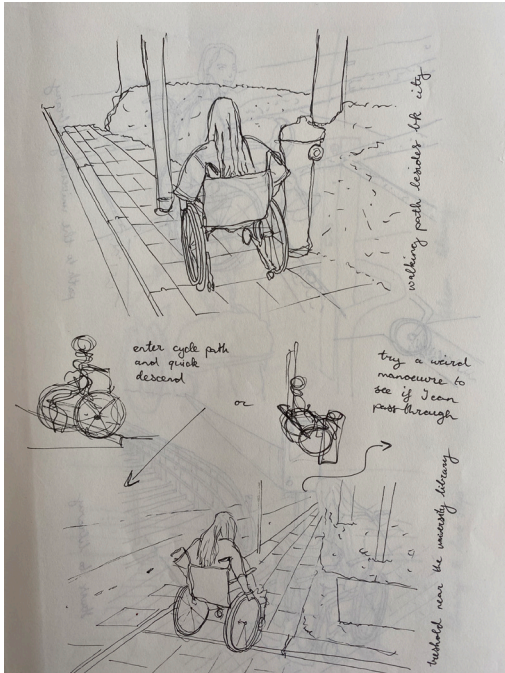 walking path besides bk city
enter cycle path
and quick
descend
or
try a weird
manoeuvre to
see if I can
pass through
treshold near the university library